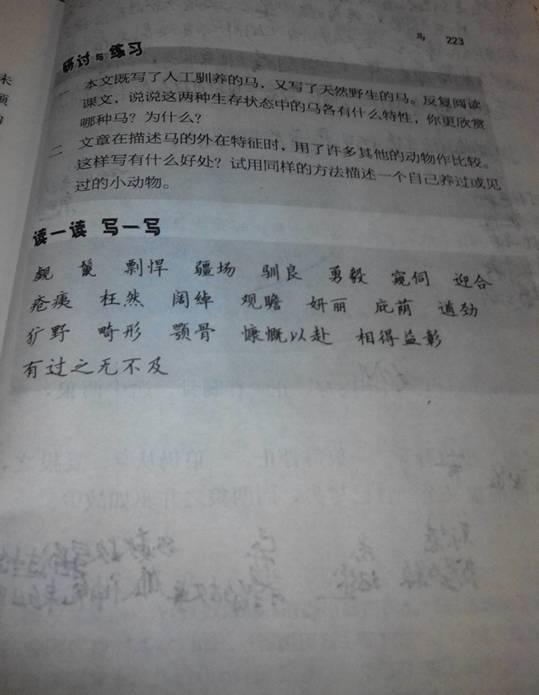 马 223
研讨与练习
一 本文既写了人工驯养的马，又写了天然野生的马。反复阅读
课文，说说这两种生存状态中的马各有什么特性，你更欣赏
哪种马？为什么？
二 文章在描述马的外在特征时，用了许多其他的动物作比较。
这样写有什么好处？试用同样的方法描述一个自己养过或见
过的小动物。
读一读 写一写
觑 鬣 剽悍 疆场 驯良 勇毅 窥伺 迎合
疮痍 枉然 阔绰 观瞻 妍丽 庇荫 遒劲
犷野 畸形 颚骨 慷慨以赴 相得益彰
有过之无不及